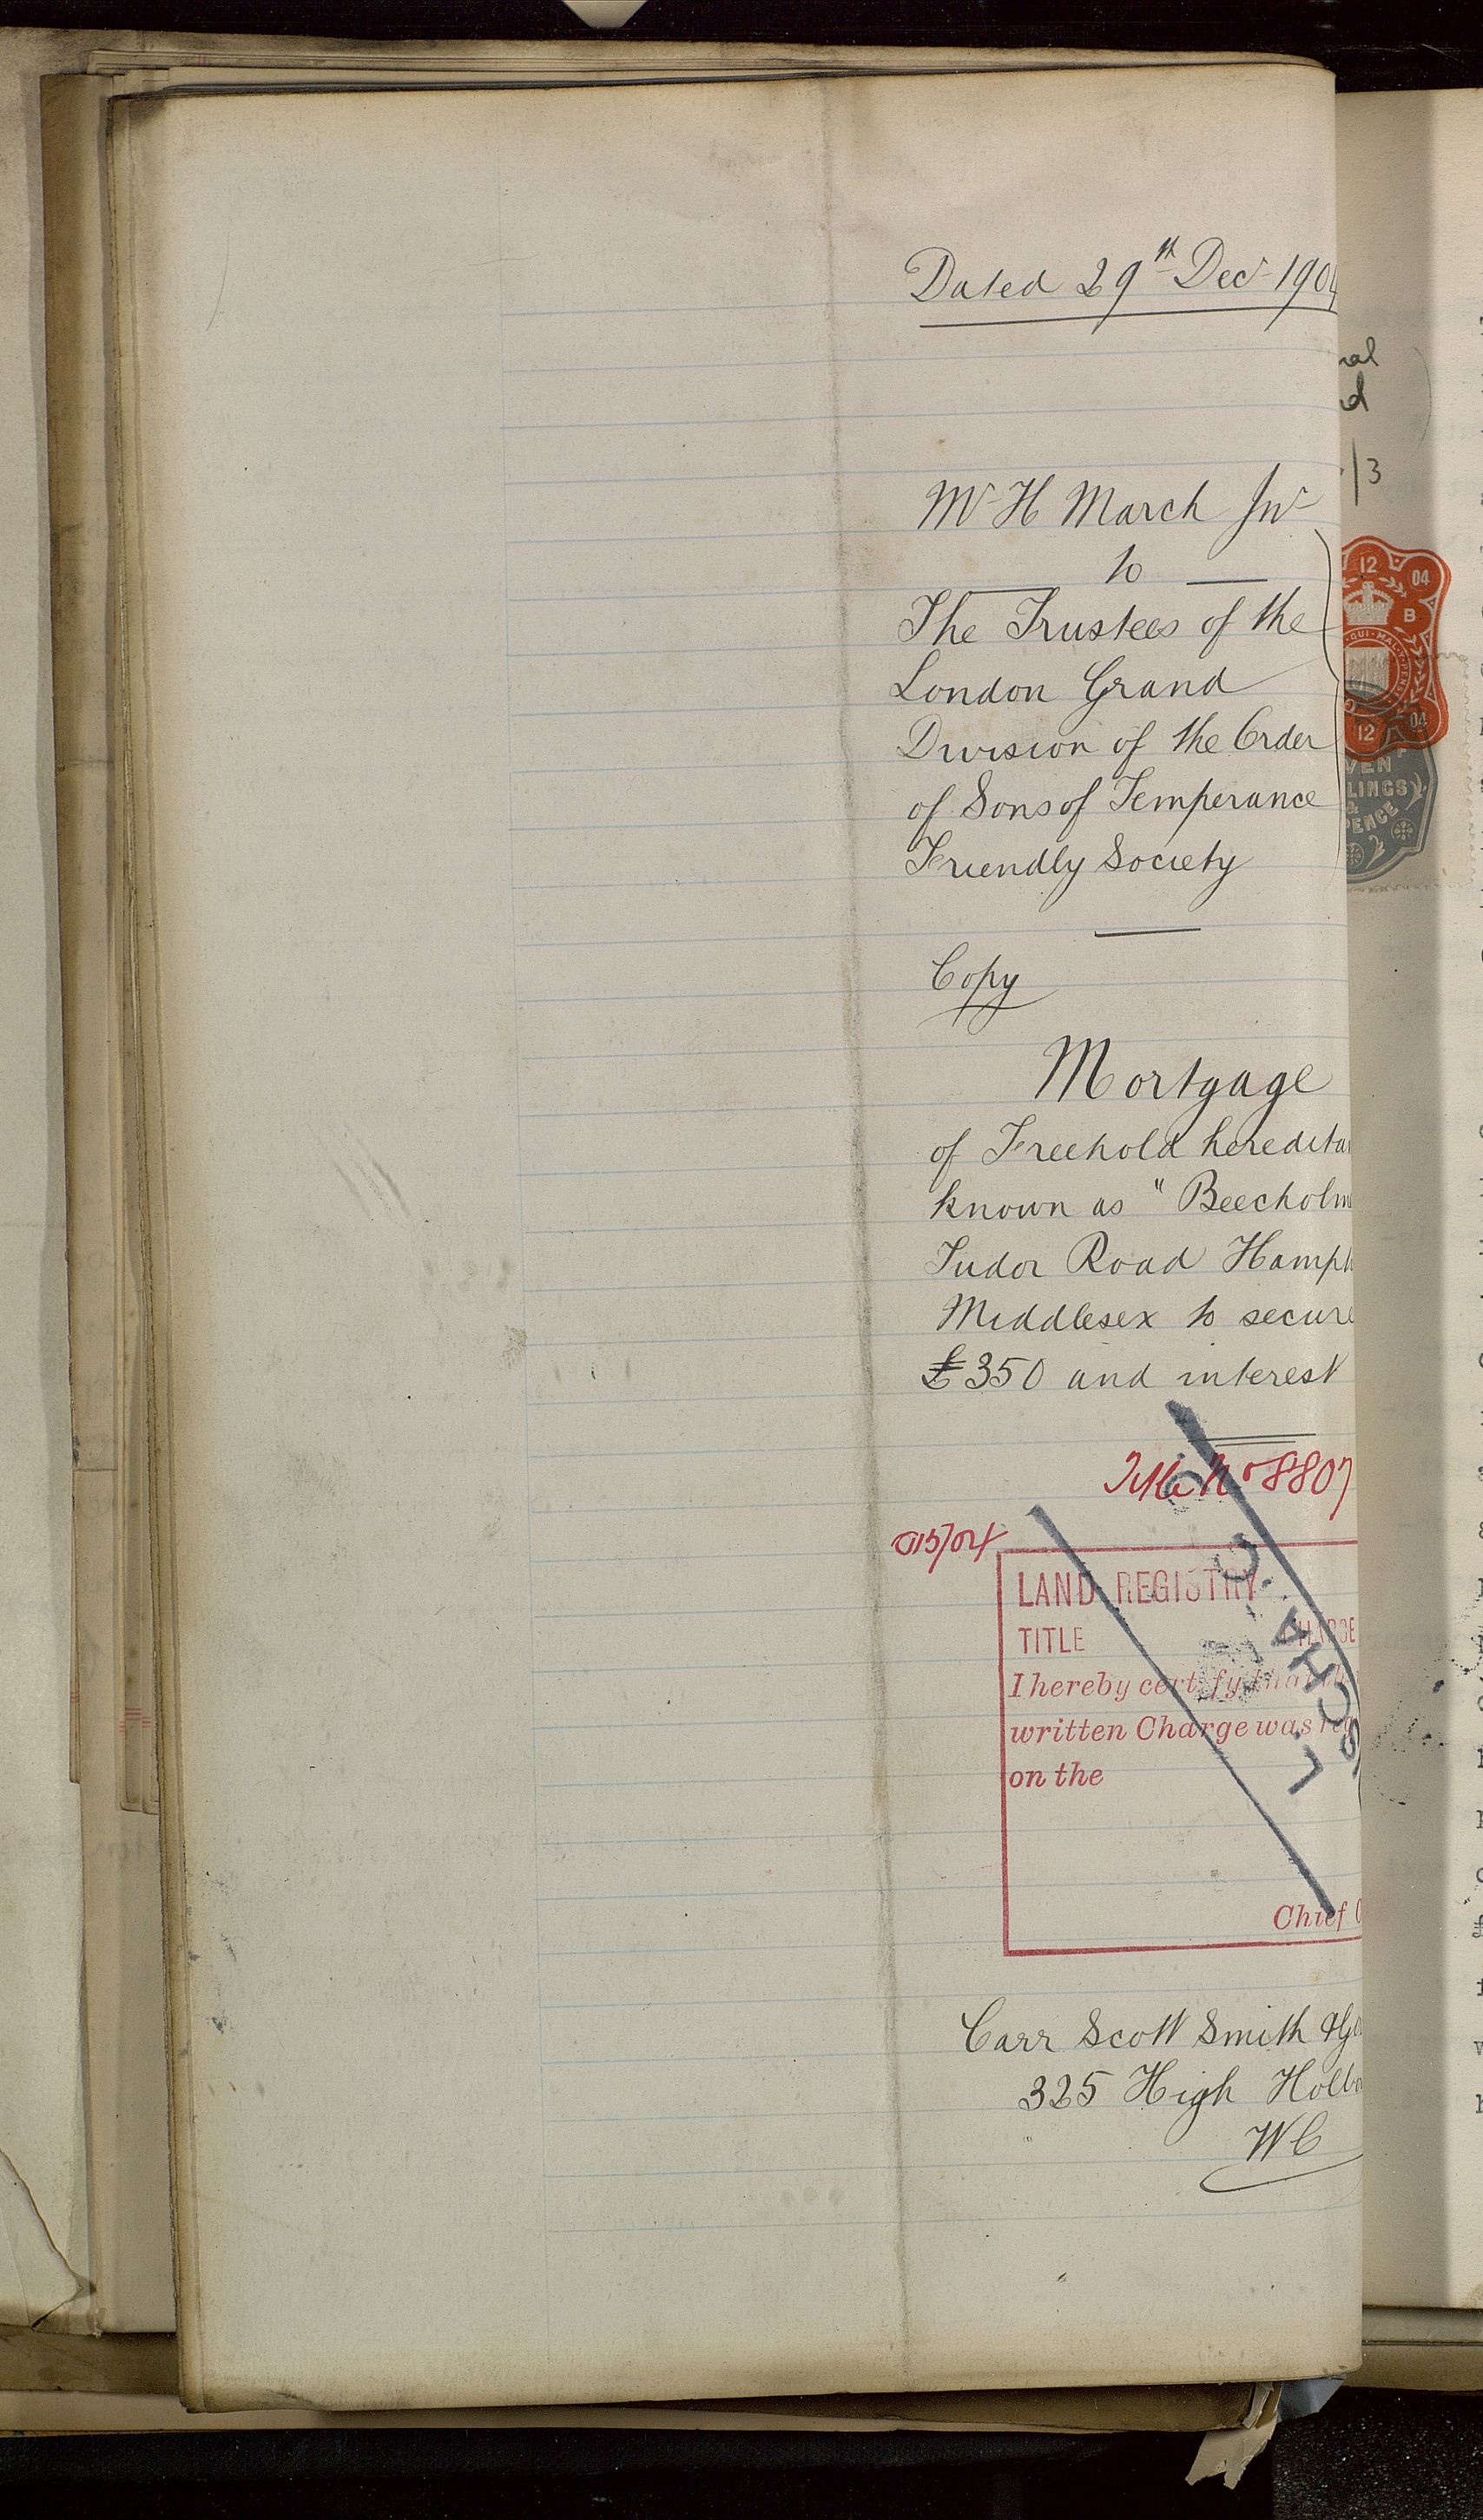 Dated 29th Decr 1904
Mr H March Jnr
to
The Trustees of the
London Grand
Division of the Order
of Sons of Temperance
Friendly Society
Copy
Mortgage
of Freehold heredita
known as "Beecholm
Tudor Road Hampt
Middlesex to secure
£350 and interest
Title No 8807
LAND REGISTRY
TITLE CHARGE
I hereby certify that
written Charge was reg
on the
Chief
Carr Scott Smith &
325 High Holbo
WC
nal
d
/3
12 04
B
QUI·MAL·Y·PENSE
12 04
VEN
LINGS
&
PENCE